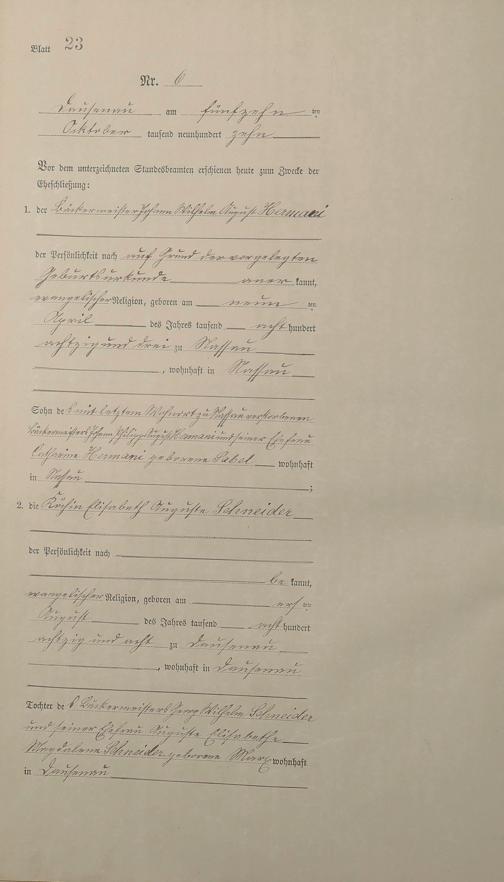 Blatt 23
Nr. 6
Dausenau am fünfzehn ten
Oktober tausend neunhundert zehn
Vor dem unterzeichneten Standesbeamten erschienen heute zum Zwecke der
Eheschließung:
1. der Bäckermeister Johann Wilhelm August Hermani
der Persönlichkeit nach auf Grund der vorgelegten
Geburtsurkunde aner kannt,
evangelischer Religion, geboren am neun ten
April des Jahres tausend acht hundert
achtzig und drei zu Nassau
, wohnhaft in Nassau
Sohn de s mit letztem Wohnort zu Nassau verstorbenen
Bäckermeisters Johann Philipp August Hermani und seiner Ehefrau
Catharine Hermani geborene wohnhaft
in Nassau ;
2. die Köchin Elisabeth Auguste Schneider
der Persönlichkeit nach
be kannt,
evangelischer Religion, geboren am ers ten
August des Jahres tausend acht hundert
achtzig und acht zu Dausenau
, wohnhaft in Dausenau
Tochter de s Bäckermeisters Georg Wilhelm Schneider
und seiner Ehefrau Auguste Elisabethe
Magdalene Schneider geborene Marx wohnhaft
in Dausenau